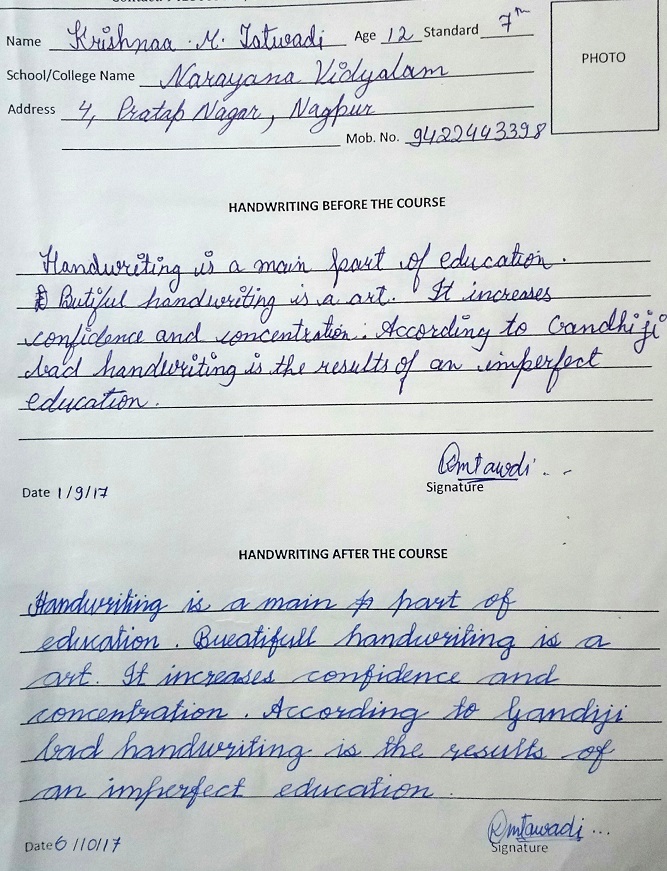 Name Krishnaa . M. Tatwadi Age 12 Standard 7th
PHOTO
School/College Name Narayana Vidyalam
Address 4, Pratap Nagar, Nagpur
Mob. No. 9422443398
HANDWRITING BEFORE THE COURSE
Handwriting is a main part of education.
Butiful handwriting is a art. It increases
confidence and concentration. According to Gandhiji
bad handwriting is the results of an imperfect
education.
Signature
Date 1/9/17
HANDWRITING AFTER THE COURSE
Handwriting is a main part of
education. Bueatifull handwriting is a
art. It increases confidence and
concentration. According to Gandiji
bad handwriting is the results of
an imperfect education.
Date 6/10/17
Signature